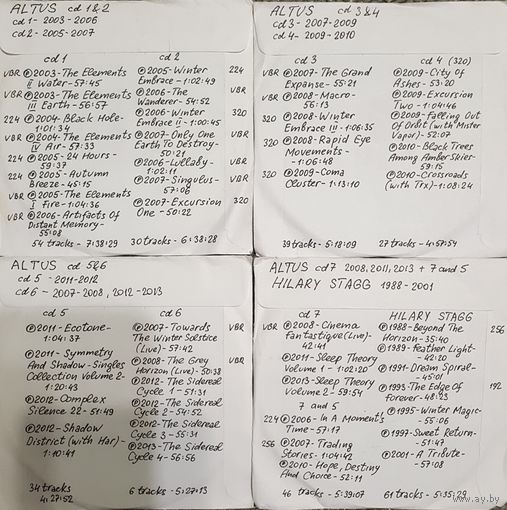 ALTUS cd 1&2
cd 1 - 2003-2006
cd 2 - 2005-2007
cd 1
VBR ℗2003-The Elements
II Water - 57:45
VBR ℗2003-The Elements
III Earth - 56:57
224 ℗2004-Black Hole-
1:01:34
VBR ℗2004-The Elements
IV Air - 57:33
224 ℗2005-24 Hours-
59:37
224 ℗2005-Autumn
Breeze - 45:15
VBR ℗2005-The Elements
I Fire - 1:04:36
VBR ℗2006-Artifacts Of
Distant Memory-
55:08
54 tracks - 7:38:29
cd 2
℗2005-Winter 224
Embrace - 1:02:49
℗2006-The VBR
Wanderer - 54:52
℗2006-Winter 320
Embrace II - 1:00:45
℗2007-Only One VBR
Earth To Destroy-
50:21
℗2006-Lullaby- VBR
1:02:11
℗2007-Singulus- VBR
57:06
℗2007-Excursion 320
One - 50:22
30 tracks - 6:38:28
ALTUS cd 3&4
cd 3 - 2007-2009
cd 4 - 2009-2010
cd 3
VBR ℗2007-The Grand
Expanse - 55:21
VBR ℗2008-Macro-
56:13
320 ℗2008-Winter
Embrace III - 1:06:35
320 ℗2008-Rapid Eye
Movements -
- 1:06:48
320 ℗2009-Coma
Cluster - 1:13:10
39 tracks - 5:18:09
cd 4 (320)
℗2009-City Of
Ashes - 53:20
℗2009-Excursion
Two - 1:04:46
℗2009-Falling Out
Of Orbit (with Mister
Vapor) - 52:07
℗2010-Black Trees
Among Amber Skies-
59:15
℗2010-Crossroads
(with Trx) - 1:08:24
27 tracks - 4:57:54
ALTUS cd 5&6
cd 5 - 2011-2012
cd 6 - 2007-2008, 2012-2013
cd 5
℗2011-Ecotone-
1:04:37
℗2011-Symmetry
And Shadow-Singles
Collection Volume 2-
1:20:43
℗2012-Complex
Silence 22 - 51:49
℗2012-Shadow
District (with Har)-
1:10:41
34 tracks
4:27:52
cd 6
℗2007-Towards VBR
The Winter Solstice
(Live) - 57:42
℗2008-The Grey VBR
Horizon (Live) - 50:38
℗2012-The Sidereal
Cycle 1 - 51:31
℗2012-The Sidereal
Cycle 2 - 54:52
℗2012-The Sidereal
Cycle 3 - 55:31
℗2013-The Sidereal
Cycle 4 - 56:56
6 tracks - 5:27:13
ALTUS cd 7 2008, 2011, 2013 + 7 and 5
HILARY STAGG 1988-2001
cd 7
VBR ℗2008-Cinema
Fantastique (Live)-
42:41
℗2011-Sleep Theory
Volume 1 - 1:02:20
℗2013-Sleep Theory
Volume 2 - 59:54
7 and 5
224 ℗2006-In A Moment's
Time - 57:17
256 ℗2007-Trading
Stories - 1:04:42
℗2010-Hope, Destiny
And Choice - 52:11
46 tracks - 5:39:07
HILARY STAGG
℗1988-Beyond The 256
Horizon - 35:40
℗1989-Feather Light-
42:20
℗1991-Dream Spiral-
45:01
℗1993-The Edge Of 192
forever - 48:23
℗1995-Winter Magic-
55:06
℗1997-Sweet Return-
51:47
℗2001-A Tribute-
57:08
61 tracks - 5:35:29
www.ay.by